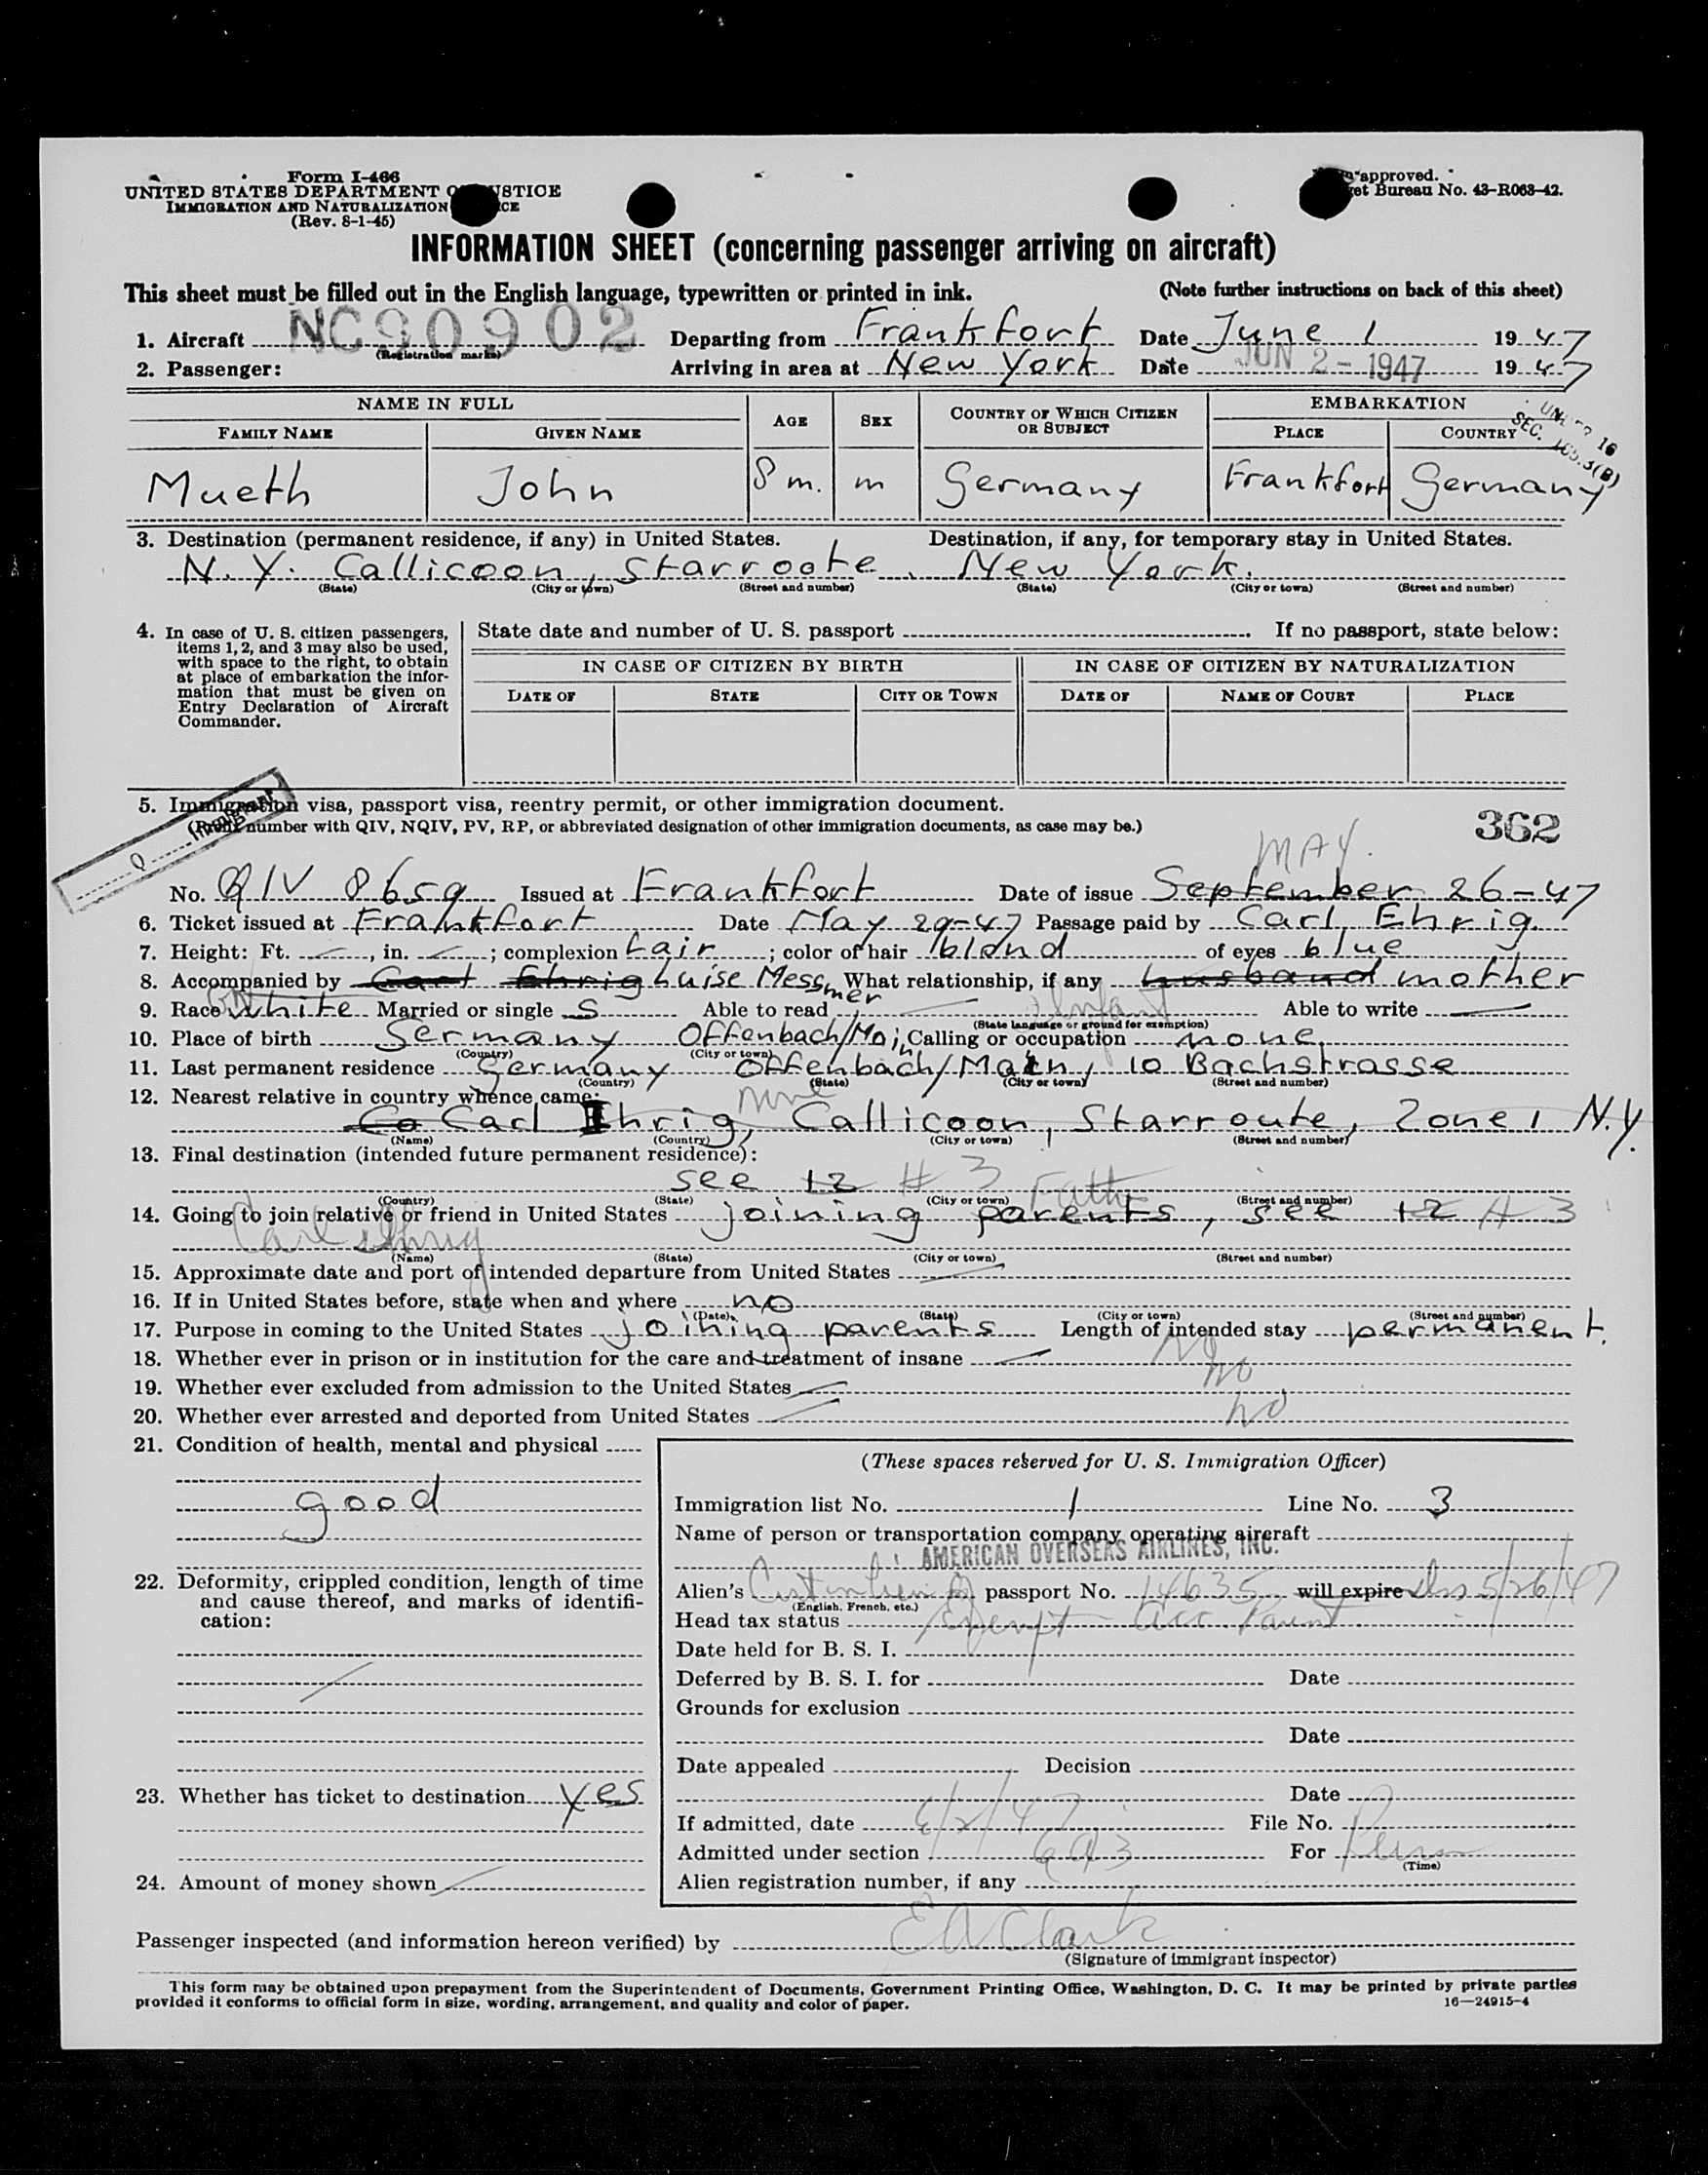 Form I-466
UNITED STATES DEPARTMENT OF JUSTICE
IMMIGRATION AND NATURALIZATION
(Rev. 8-1-45)
approved.
et Bureau No. 43-R063-42.
INFORMATION SHEET (concerning passenger arriving on aircraft)
This sheet must be filled out in the English language, typewritten or printed in ink. (Note further instructions on back of this sheet)
1. Aircraft NC90902 Departing from Frankfort Date June 1 1947
(Registration marks)
2. Passenger: Arriving in area at New York Date JUN 2 - 1947 1947
NAME IN FULL AGE SEX COUNTRY OF WHICH CITIZEN OR SUBJECT EMBARKATION
FAMILY NAME GIVEN NAME PLACE COUNTRY
SEC. 165.3(B)
Mueth John 8 m. m Germany Frankfort Germany
3. Destination (permanent residence, if any) in United States. Destination, if any, for temporary stay in United States.
N.Y. Callicoon, Starroote, New York.
(State) (City or town) (Street and number) (State) (City or town) (Street and number)
4. In case of U. S. citizen passengers, items 1, 2, and 3 may also be used, with space to the right, to obtain at place of embarkation the information that must be given on Entry Declaration of Aircraft Commander.
State date and number of U. S. passport . If no passport, state below:
IN CASE OF CITIZEN BY BIRTH IN CASE OF CITIZEN BY NATURALIZATION
DATE OF STATE CITY OR TOWN DATE OF NAME OF COURT PLACE
5. Immigration visa, passport visa, reentry permit, or other immigration document.
(Prefix number with QIV, NQIV, PV, RP, or abbreviated designation of other immigration documents, as case may be.)
Q Immigrant
362
MAY.
No. QIV 8659 Issued at Frankfort Date of issue September 26-47
6. Ticket issued at Frankfort Date May 29-47 Passage paid by Carl Ehrig.
7. Height: Ft. , in. ; complexion fair ; color of hair blond of eyes blue
8. Accompanied by Carl Ehrig Luise Messmer What relationship, if any husband mother
9. Race White Married or single S Able to read Infant Able to write
(State language or ground for exemption)
10. Place of birth Germany Offenbach/Main Calling or occupation none
(Country) (City or town)
11. Last permanent residence Germany Offenbach/Main, 10 Bachstrasse
(Country) (State) (City or town) (Street and number)
12. Nearest relative in country whence came: none
Ca Carl Ehrig, Callicoon, Starroute, Zone 1 N.Y.
(Name) (Country) (City or town) (Street and number)
13. Final destination (intended future permanent residence):
see 12 # 3
(Country) (State) (City or town) (Street and number)
14. Going to join relative or friend in United States joining parents, see 12 # 3
Father
Carl Ehrig
(Name) (State) (City or town) (Street and number)
15. Approximate date and port of intended departure from United States
16. If in United States before, state when and where no
(Date) (State) (City or town) (Street and number)
17. Purpose in coming to the United States joining parents Length of intended stay permanent.
18. Whether ever in prison or in institution for the care and treatment of insane No
19. Whether ever excluded from admission to the United States No
20. Whether ever arrested and deported from United States No
21. Condition of health, mental and physical
good
22. Deformity, crippled condition, length of time and cause thereof, and marks of identification:
23. Whether has ticket to destination yes
24. Amount of money shown
(These spaces reserved for U. S. Immigration Officer)
Immigration list No. 1 Line No. 3
Name of person or transportation company operating aircraft
AMERICAN OVERSEAS AIRLINES, INC.
Alien's passport No. 14635 will expire 5/26/47
(English, French, etc.)
Head tax status Exempt acc. Parent
Date held for B. S. I.
Deferred by B. S. I. for Date
Grounds for exclusion
Date
Date appealed Decision
Date
If admitted, date 6/2/47 File No.
Admitted under section 6a3 For Perm
(Time)
Alien registration number, if any
Passenger inspected (and information hereon verified) by EA Clark
(Signature of immigrant inspector)
This form may be obtained upon prepayment from the Superintendent of Documents, Government Printing Office, Washington, D. C. It may be printed by private parties
provided it conforms to official form in size, wording, arrangement, and quality and color of paper. 16—24915-4